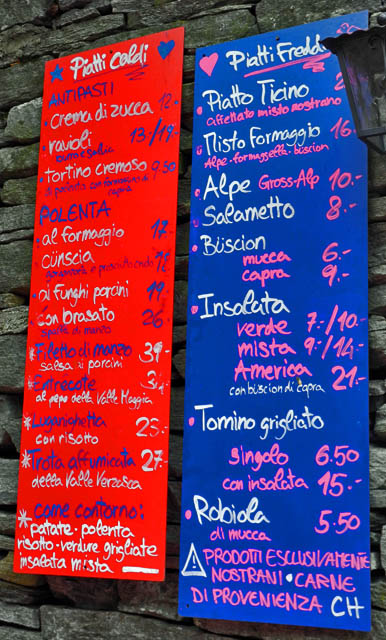 Piatti Caldi
ANTIPASTI
crema di zucca 12.-
ravioli 13/19.-
burro e salvia
tortino cremoso 9.50
di polenta con formaggino di
capra
POLENTA
al formaggio 17.-
cünscia
gorgonzola e prosciutto crudo
ai funghi porcini 19.-
con brasato 26.-
spalla di manzo
*Filetto di manzo 39.-
salsa ai porcini
*Entrecôte
al pepe della Valle Maggia
*Luganighetta 23.-
con risotto
*Trota affumicata 27.-
della Valle Verzasca
*come contorno:
patate · polenta
risotto · verdure grigliate
insalata mista
Piatti Freddi
Piatto Ticino
affettato misto nostrano
Misto Formaggio 16
Alpe · formagella · büscion
Alpe Gross-Alp 10.-
Salametto 8.-
Büscion
mucca 6.-
capra 9.-
Insalata
verde 7.-/10.-
mista 9.-/14.-
America 21.-
con büscion di capra
Tomino grigliato
singolo 6.50
con insalata 15.-
Robiola 5.50
di mucca
⚠ PRODOTTI ESCLUSIVAMENTE
NOSTRANI · CARNE
DI PROVENIENZA CH